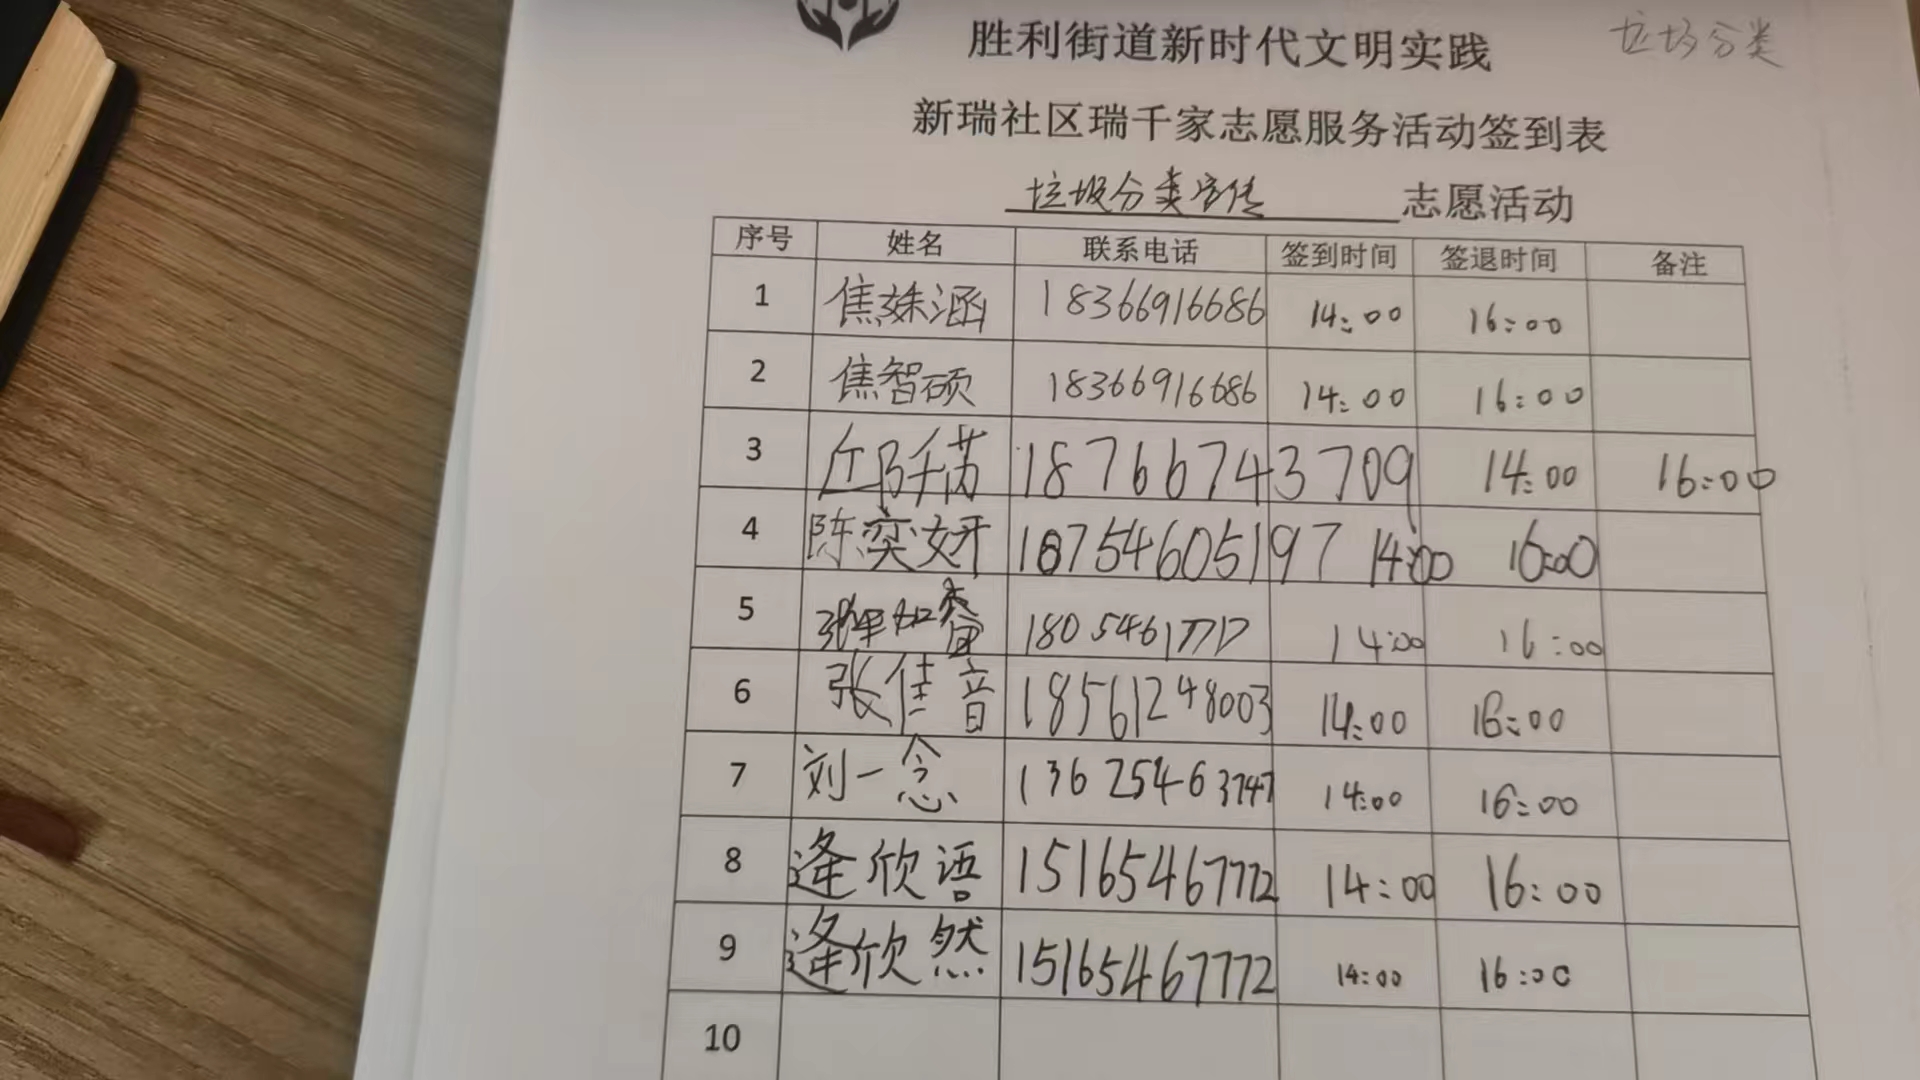 垃圾分类
胜利街道新时代文明实践
新瑞社区瑞千家志愿服务活动签到表
垃圾分类宣传 志愿活动
序号 姓名 联系电话 签到时间 签退时间 备注
1 焦姝涵 18366916686 14:00 16:00
2 焦智硕 18366916686 14:00 16:00
3 丘阝千芮 18766743709 14:00 16:00
4 陈奕妍 18754605197 14:00 16:00
5 18054617717 14:00 16:00
6 张佳音 18561248003 14:00 16:00
7 刘一念 13625463747 14:00 16:00
8 逄欣语 15165467772 14:00 16:00
9 逄欣然 15165467772 14:00 16:00
10